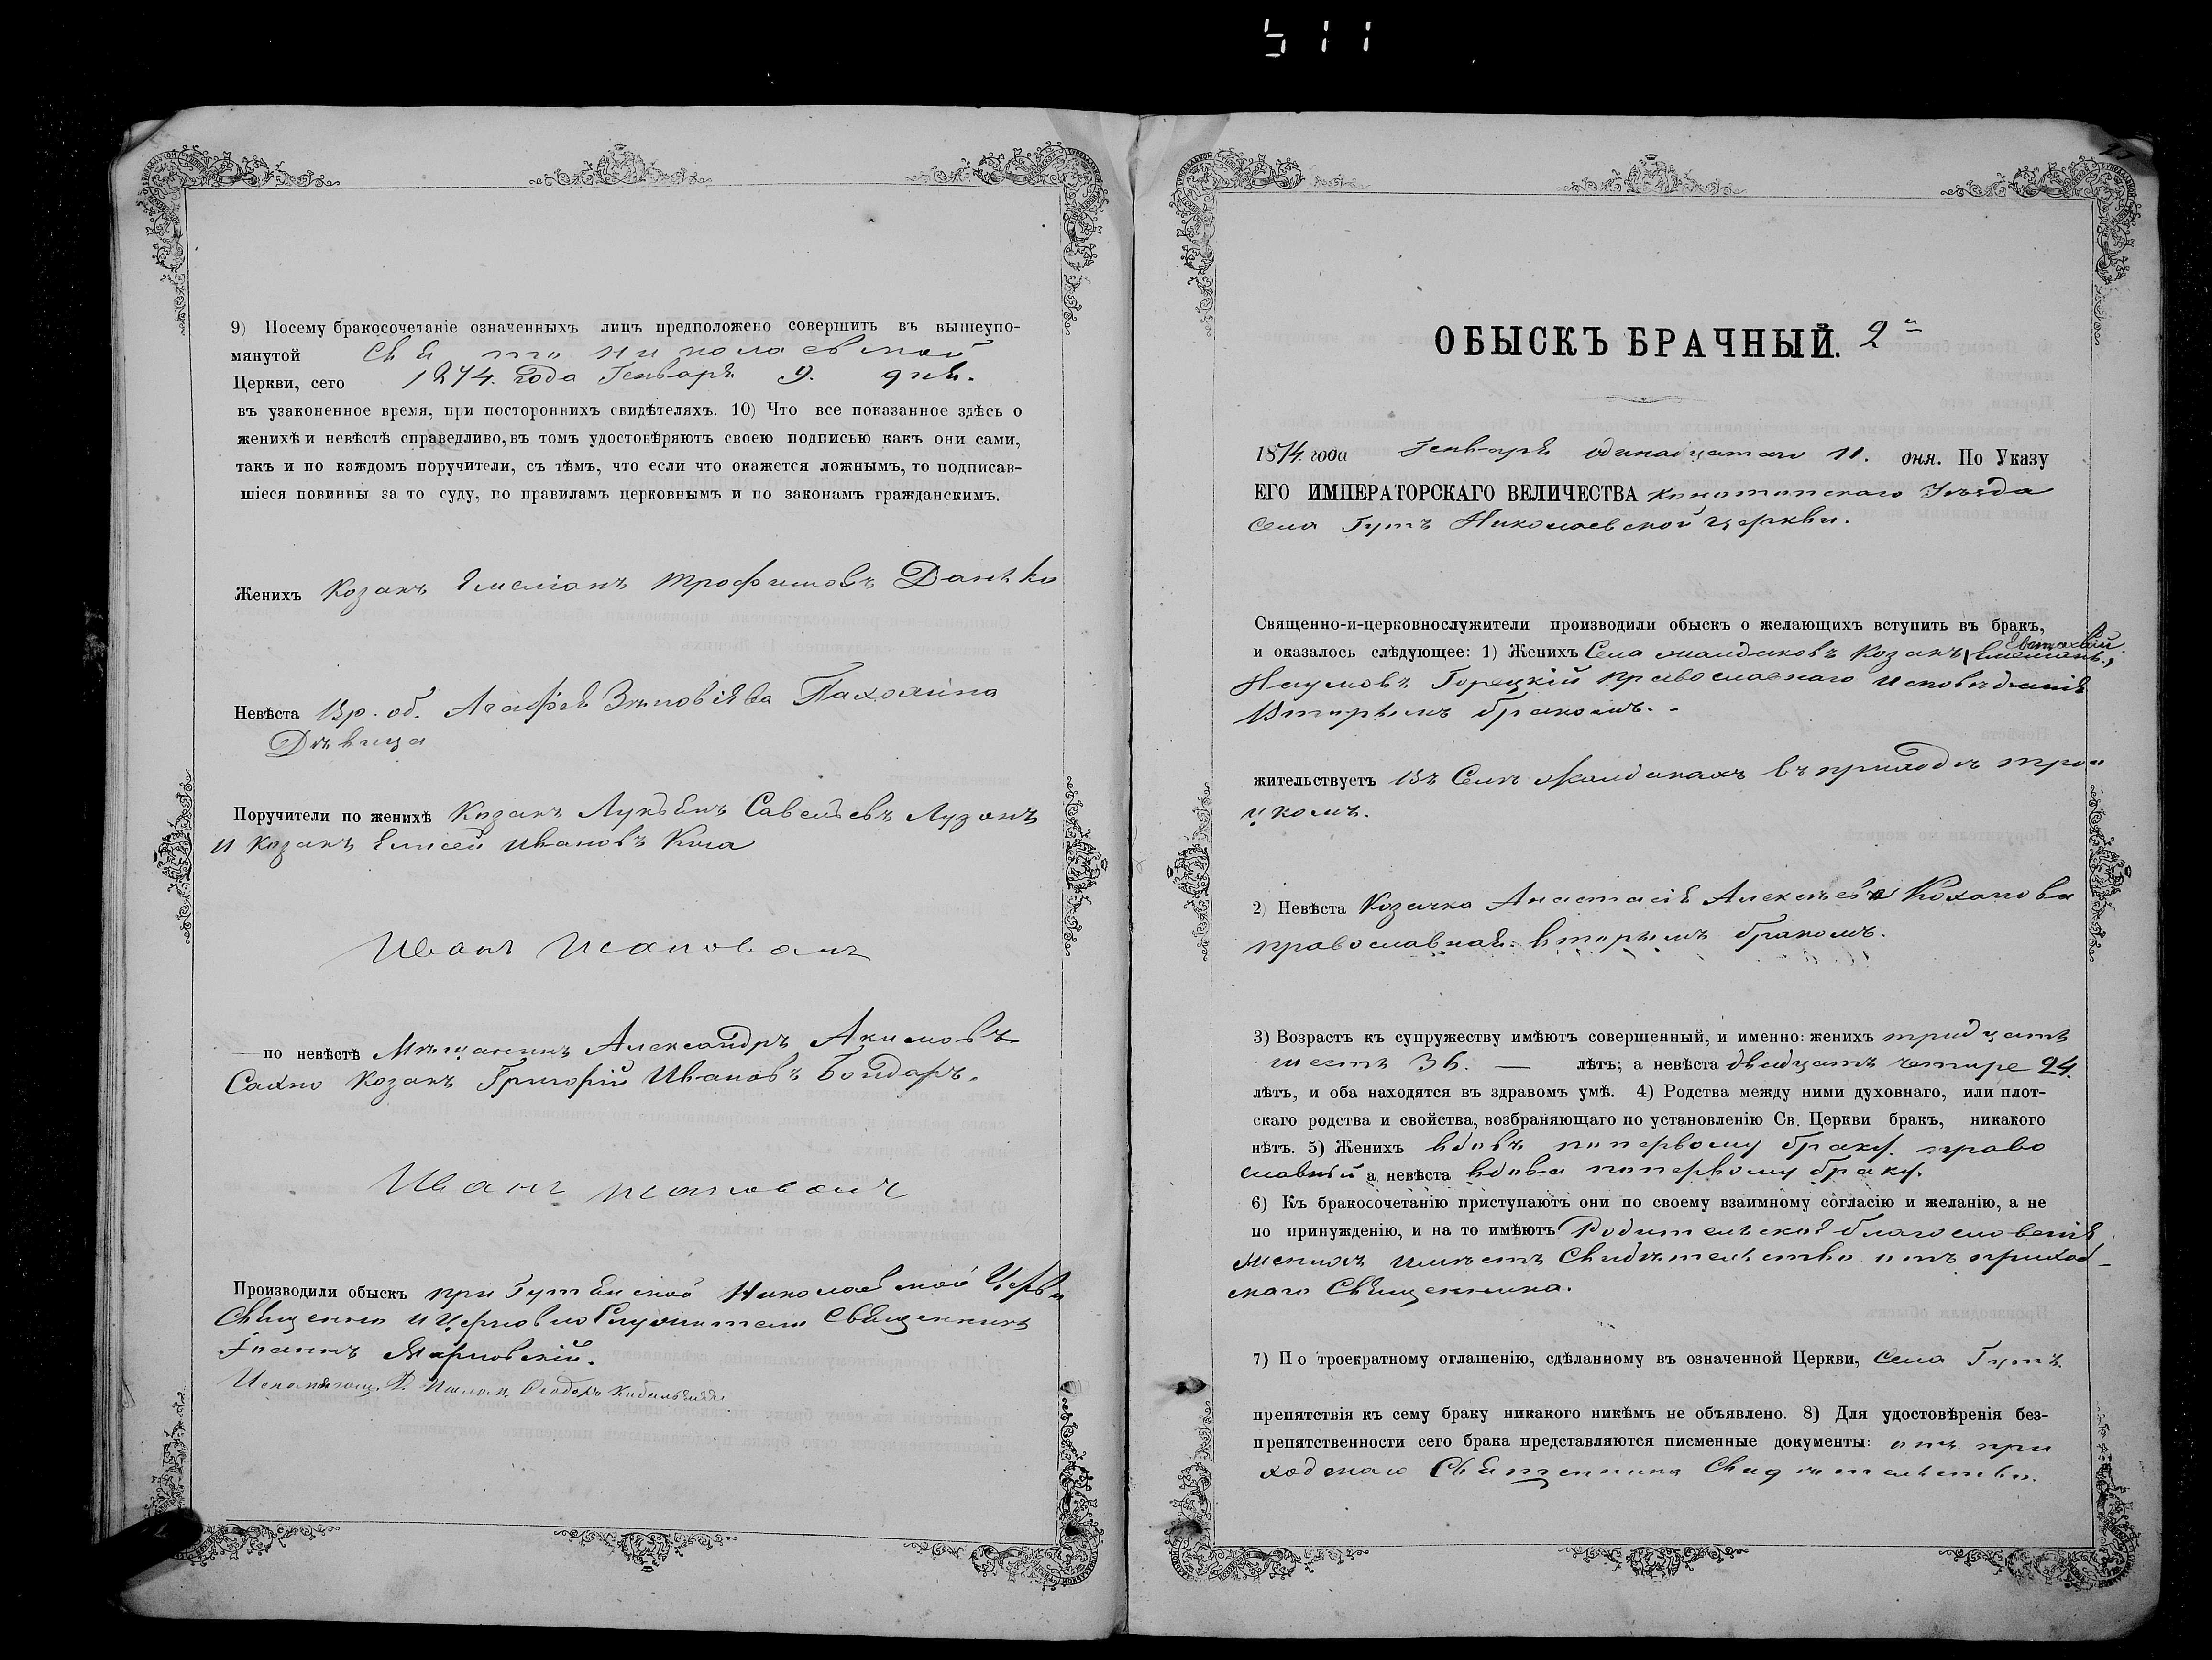 9) Посему бракосочетаніе означенныхъ лицъ предположено совершить въ вышеупо-
мянутой Свято Николаевской
Церкви, сего 1874. года Генваря 9. дня.
въ узаконенное время, при постороннихъ свидѣтеляхъ. 10) Что все показанное здѣсь о
женихѣ и невѣстѣ справедливо, въ томъ удостовѣряютъ своею подписью какъ они сами,
такъ и по каждомъ поручители, съ тѣмъ, что если что окажется ложнымъ, то подписав-
шіеся повинны за то суду, по правиламъ церковнымъ и по законамъ гражданскимъ.
Женихъ Козакъ Емеліанъ Трофимовъ Данько
Невѣста Вр. об. Агафія Зѣновіява Пахолина
Дѣвица
Поручители по женихѣ Козакъ Лукьянъ Савельевъ Лузанъ
и Козакъ Елисей Ивановъ Кила
Иванъ
по невѣстѣ Мѣщанинъ Александръ Акимовъ
Сахно Козакъ Григорій Ивановъ Бондарь.
Иванъ
Производили обыскъ при Гутянской Николаевской Церкви
Священно и Церковно Служители Священникъ
Іоаннъ Марковскій.
ОБЫСКЪ БРАЧНЫЙ. 2й
1874. года Генваря одинадцатаго 11. дня. По Указу
ЕГО ИМПЕРАТОРСКАГО ВЕЛИЧЕСТВА Конотопскаго Уѣзда
Села Гутъ Николаевской церкви.
Священно-и-церковнослужители производили обыскъ о желающихъ вступить въ бракъ,
Евстафій
и оказалось слѣдующее: 1) Женихъ Села Малдаковъ Козакъ (Емеліанъ.)
Наумовъ Горецкій православнаго исповѣданія
Вторымъ бракомъ.
жительствуетъ Въ Селѣ Малдакахъ въ приходѣ трои
цкомъ.
2) Невѣста Козачка Анастасія Алексѣева Коханова
православная: вторымъ бракомъ.
3) Возрастъ къ супружеству имѣютъ совершенный, и именно: женихъ тридцать
шесть 36. — лѣтъ; а невѣста двадцать четыре 24.
лѣтъ, и оба находятся въ здравомъ умѣ. 4) Родства между ними духовнаго, или плот-
скаго родства и свойства, возбраняющаго по установленію Св. Церкви бракъ, никакого
нѣтъ. 5) Женихъ вдовъ по первому браку. право
славный а невѣста вдова по первому браку.
6) Къ бракосочетанію приступаютъ они по своему взаимному согласію и желанію, а не
по принужденію, и на то имѣютъ Родительское благословенія
Женихъ имѣетъ Свидѣтельство отъ приход-
скаго Священника.
7) По троекратному оглашенію, сдѣланному въ означенной Церкви, Села Гутъ.
препятствія къ сему браку никакого никѣмъ не объявлено. 8) Для удостовѣренія без-
препятственности сего брака представляются писменные документы: отъ при
ходскаго Священника Свидѣтельство.